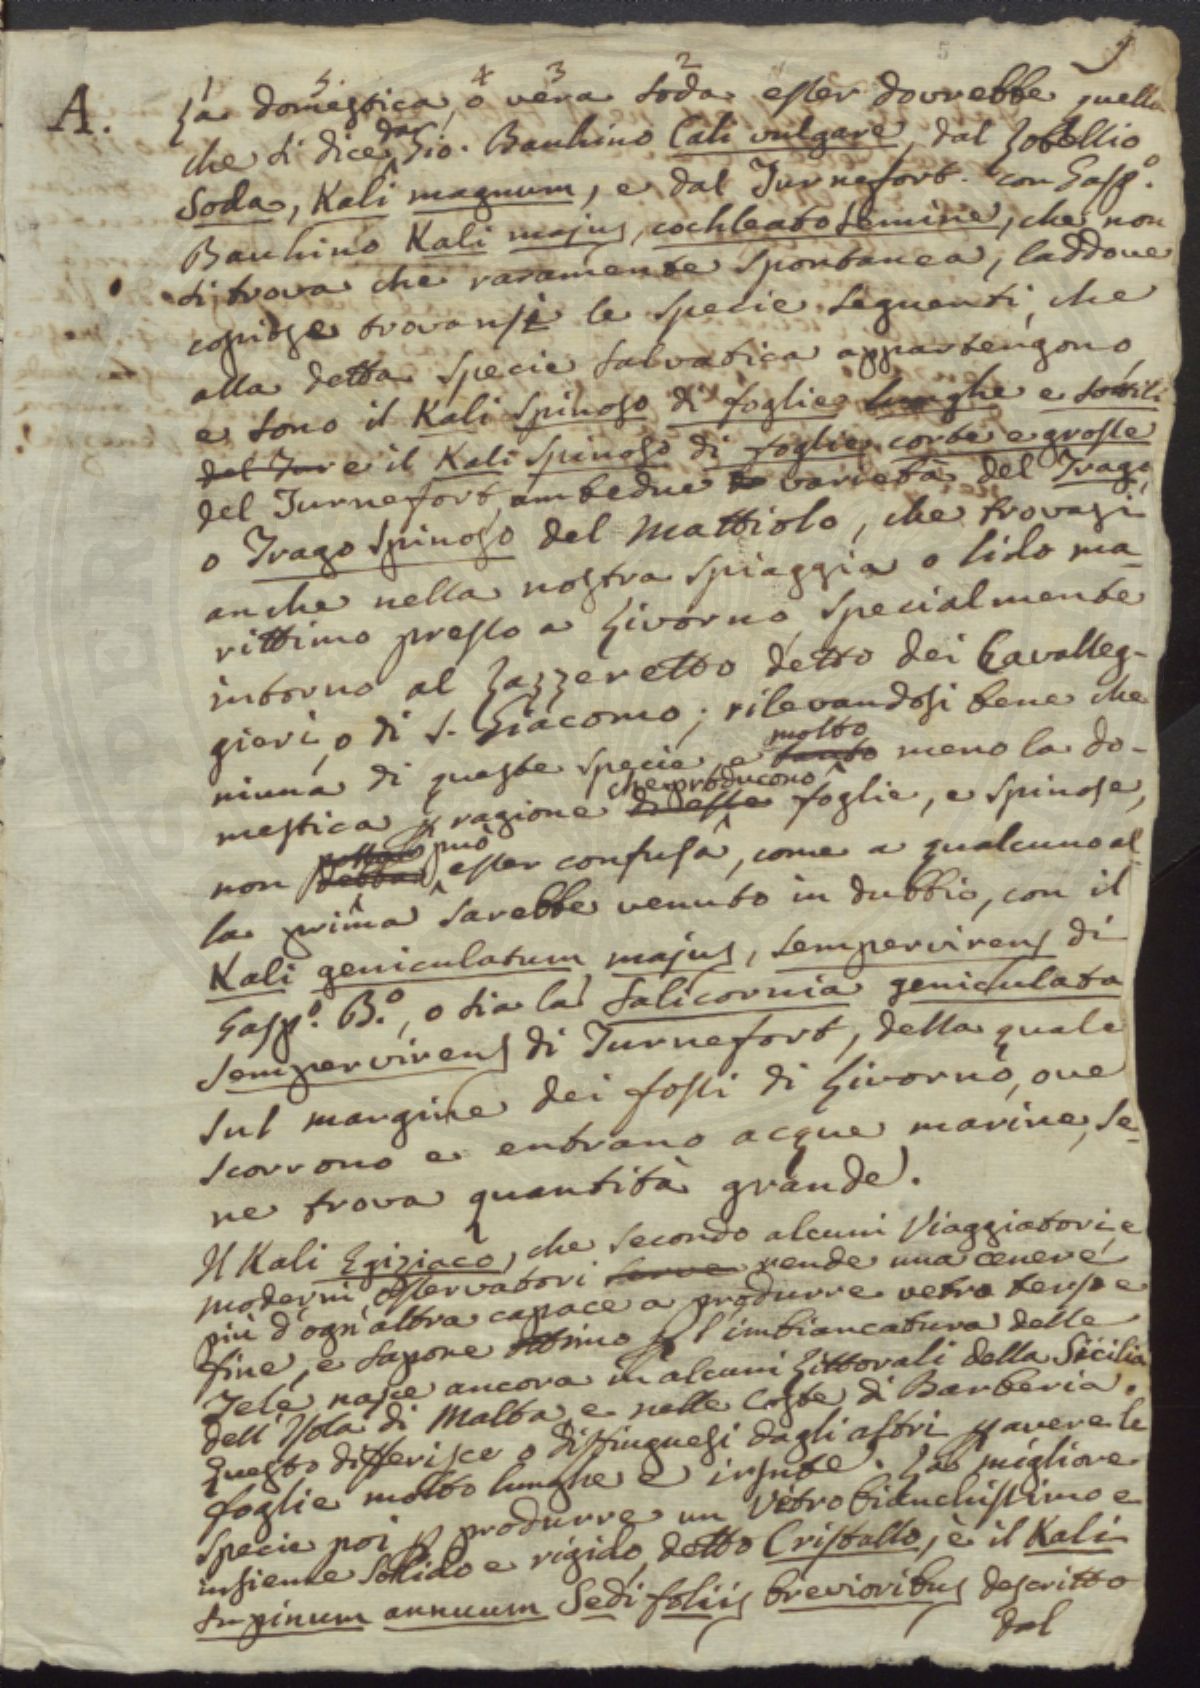 5
A.
1 5 4 3 2
La domestica, o vera soda esser dovrebbe quella
che si dice da Gio. Bauhino Cali vulgare, dal Lobellio
Soda, Kali magnum, e dal Turnefort con Gasp.o
Bauhino Kali majus, cochleato semine, che non
si trova che raramente spontanea, laddove
copiose trovansi le specie seguenti, che
alla detta specie salvatica appartengono,
e sono il Kali spinoso di foglie lunghe e sottili
del Tur e il Kali spinoso di foglie corte e grosse
del Turnefort, ambedue varietà del Trago,
o Trago spinoso del Mattiolo, che trovasi
anche nella nostra spiaggia o lido ma-
rittimo presso a Livorno, specialmente
intorno al Lazzeretto detto dei Cavalleg-
gieri, o di S. Giacomo; rilevandosi bene che
molto
niuna di queste specie, e tanto meno la do-
che producono
mestica p ragione di esse foglie, e spinose,
può
non debba esser confusa, come a qualcuno al-
la prima sarebbe venuto in dubbio, con il
Kali geniculatum majus, sempervirens di
Gasp.o B.o, o sia la Salicornia geniculata
sempervirens di Turnefort, della quale
sul margine dei fossi di Livorno, ove
scorrono e entrano acque marine, se
ne trova quantità grande.
Il Kali Egiziaco, che secondo alcuni Viaggiatori, e
moderni osservatori rende una cenere
più d'ogn'altra capace a produrre vetro terso e
fine, e sapone ottimo p l'imbiancatura delle
Tele, nasce ancora in alcuni Littorali della Sicilia
dell'Isola di Malta, e nelle Coste di Barberia.
Questo differisce o distinguesi dagli altri p avere le
foglie molto lunghe e irsute. La migliore
specie poi p produrre un Vetro bianchissimo e
insieme sollido e rigido, detto Cristallo, è il Kali
supinum annuum Sedi foliis brevioribus descritto
dal